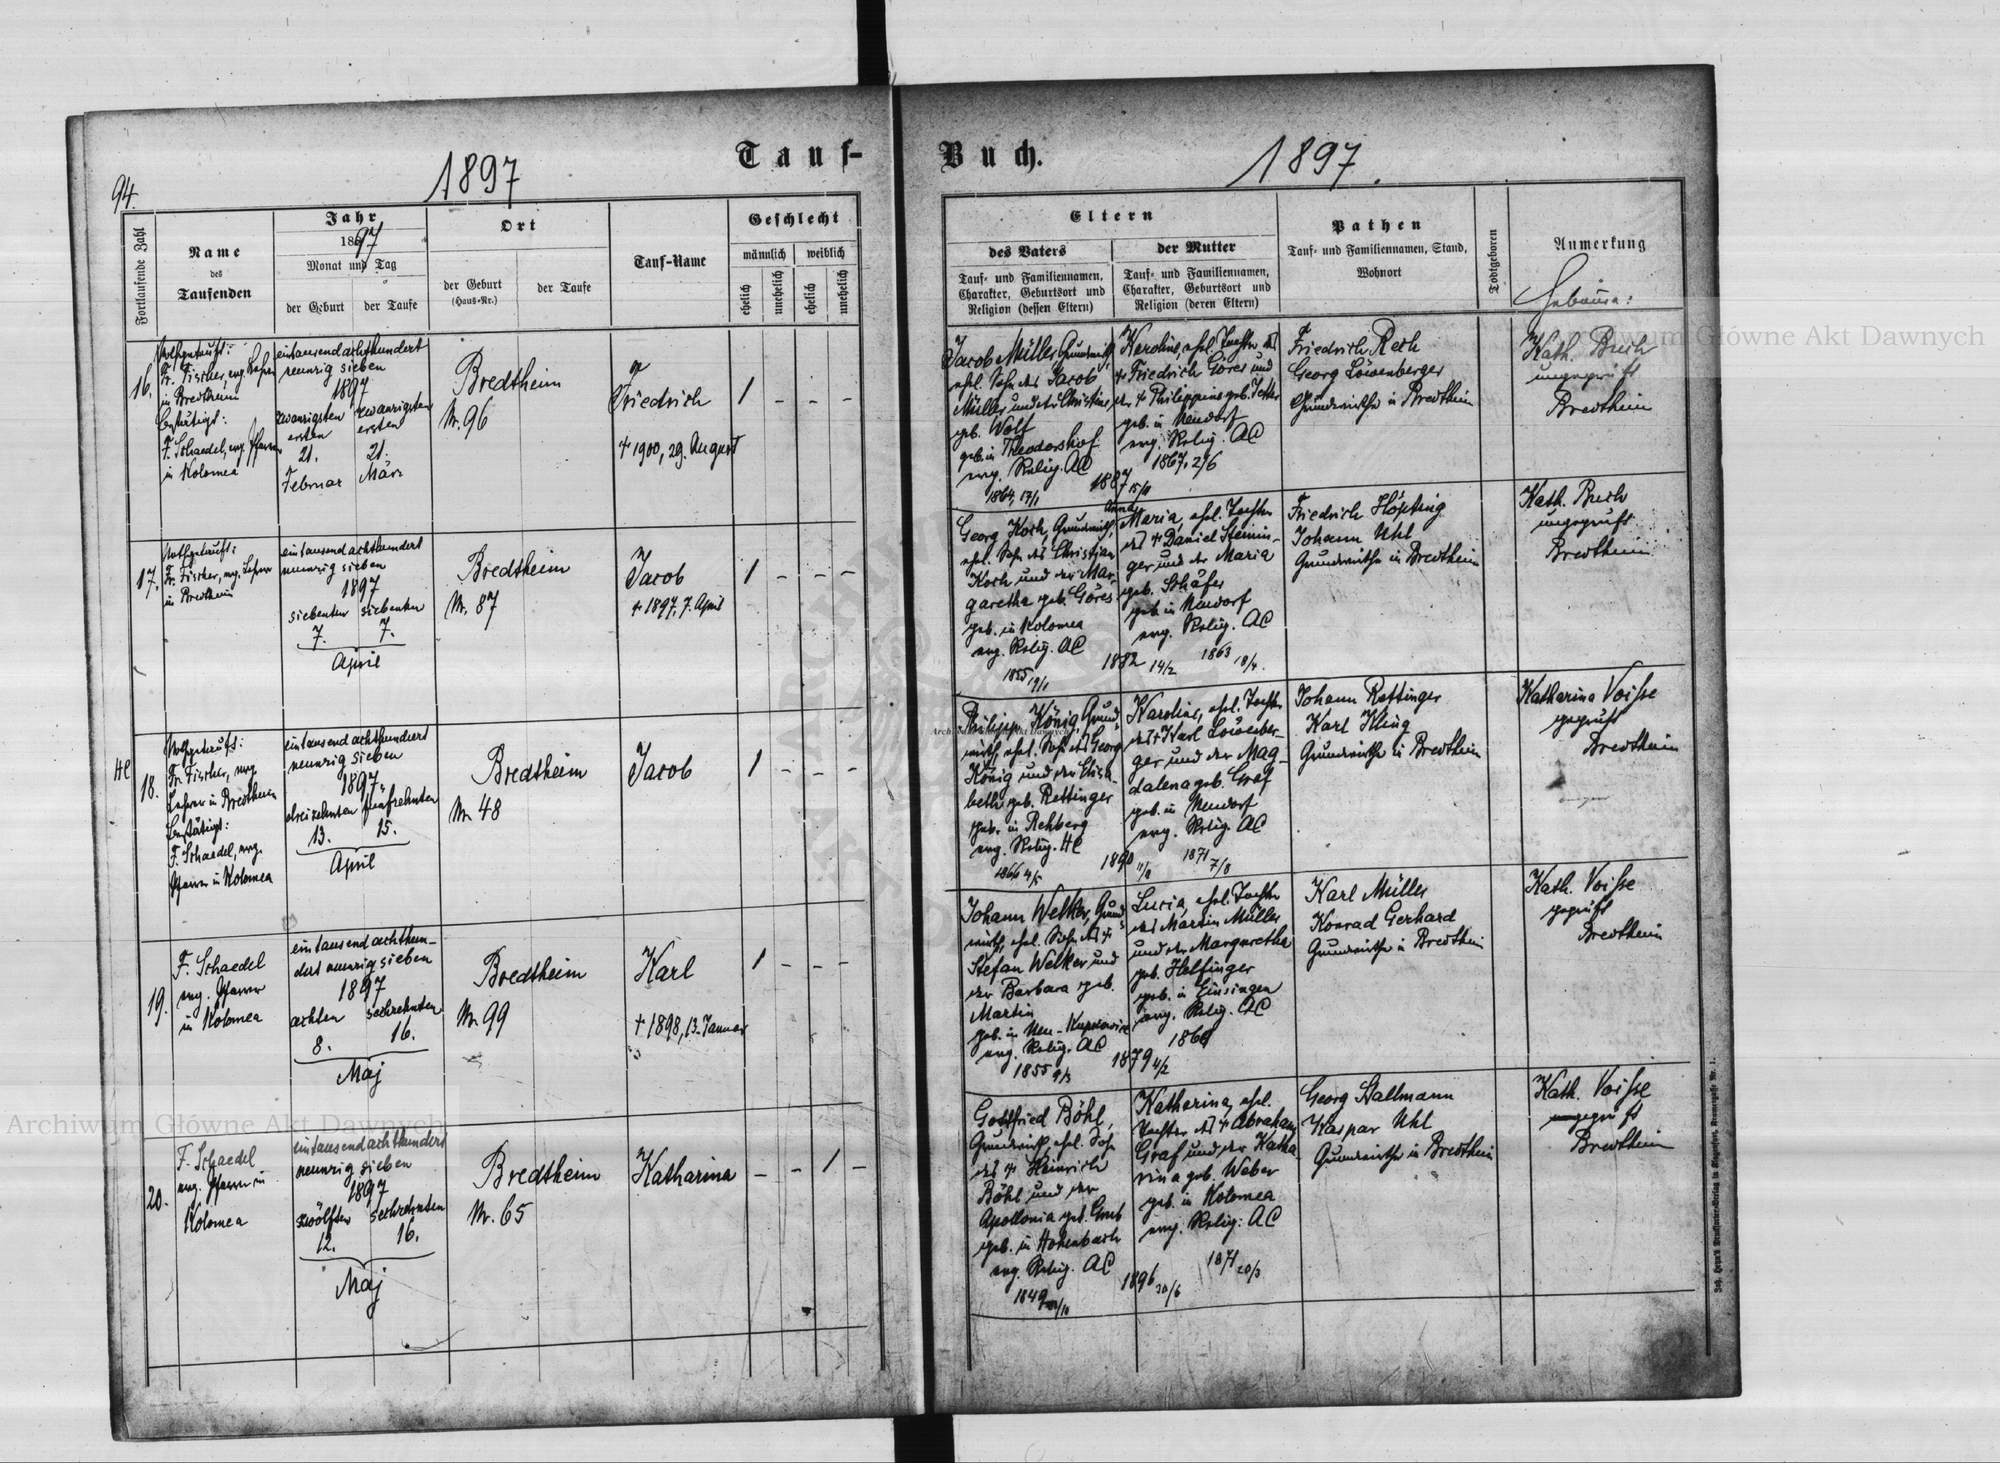 94.
1897
Tauf-
Fortlaufende Zahl
Name
des
Taufenden
Jahr
1897
Monat und Tag
der Geburt
der Taufe
Ort
der Geburt
(Haus-Nr.)
der Taufe
Tauf-Name
Geschlecht
männlich
weiblich
ehelich
unehelich
ehelich
unehelich
16.
Nothgetauft:
Fr. Fischer, evg. Lehrer
in Bredtheim
bestätigt:
F. Schaedel, evg. Pfarrer
in Kolomea
eintausendachthundert
neunzig sieben
1897
zwanzigsten zwanzigsten
ersten ersten
21. 21.
Februar März
Bredtheim
Nr. 96
Friedrich
† 1900, 29. August
1 - - -
17.
Nothgetauft:
Fr. Fischer, evg. Lehrer
in Bredtheim
eintausendachthundert
neunzig sieben
1897
siebenten siebenten
7. 7.
April
Bredtheim
Nr. 87
Jacob
† 1897, 7. April
1 - - -
HC
18.
Nothgetauft:
Fr. Fischer, evg.
Lehrer in Bredtheim
bestätigt:
F. Schaedel, evg.
Pfarrer in Kolomea
eintausendachthundert
neunzig sieben
1897
dreizehnten fünfzehnten
13. 15.
April
Bredtheim
Nr. 48
Jacob
1 - - -
19.
F. Schaedel
evg. Pfarrer
in Kolomea
eintausendachthun-
dert neunzig sieben
1897
achten sechzehnten
8. 16.
Maj
Bredtheim
Nr. 99
Karl
† 1898, 13. Januar
1 - - -
20.
F. Schaedel
evg. Pfarrer in
Kolomea
eintausendachthundert
neunzig sieben
1897
zwölften sechzehnten
12. 16.
Maj
Bredtheim
Nr. 65
Katharina
- - 1 -
Buch.
1897.
Eltern
des Vaters
Tauf- und Familiennamen,
Charakter, Geburtsort und
Religion (dessen Eltern)
der Mutter
Tauf- und Familiennamen,
Charakter, Geburtsort und
Religion (deren Eltern)
Pathen
Tauf- und Familiennamen, Stand,
Wohnort
Todtgeboren
Anmerkung
Hebame:
Jacob Müller, Grundwirth,
ehel. Sohn des Jacob
Müller und der Christine
geb. Wolf
geb. in Theodorshof
evg. Relig. AC
1864, 17/1
1887 15/11
Karoline, ehel. Tochter des
† Friedrich Göres und
der † Philippine geb. Jotter
geb. in Neudorf
evg. Relig. AC
1867, 2/6
Friedrich Rech
Georg Löwenberger
Grundwirthe in Bredtheim
Kath. Buch
ungeprüft
Bredtheim
Georg Koch, Grundwirth,
ehel. Sohn des Christian
Koch und der Mar-
garetha geb. Göres
geb. in Kolomea
evg. Relig. AC
1855 19/1
1882 14/2
Anna
Maria, ehel. Tochter
des † Daniel Steinin-
ger und der Maria
geb. Schäfer
geb. in Neudorf
evg. Relig. AC
1863 18/4.
Friedrich Höpting
Johann Uhl
Grundwirthe in Bredtheim
Kath. Buch
ungeprüft
Bredtheim
Philipp König, Grund-
wirth, ehel. Sohn des Georg
König und der Elisa-
beth geb. Rettinger
geb. in Rehberg
evg. Relig. HC
1866 4/5
1890 11/8
Karoline, ehel. Tochter
des † Karl Löwenber-
ger und der Mag-
dalena geb. Graf
geb. in Neudorf
evg. Relig. AC
1871 7/8
Johann Rettinger
Karl Kling
Grundwirthe in Bredtheim
Katharina Voisse
geprüft
Bredtheim
Johann Welker, Grund-
wirth, ehel. Sohn des †
Stefan Welker und
der Barbara geb.
Martin
geb. in Neu-Kupnowice
evg. Relig. AC
1855 9/3
1879 4/2
Lucia, ehel. Tochter
des Martin Müller
und der Margaretha
geb. Helfinger
geb. in Einsingen
evg. Relig. AC
Karl Müller
Konrad Gerhard
Grundwirthe in Bredtheim
Kath. Voisse
geprüft
Bredtheim
Gottfried Böhl,
Grundwirth, ehel. Sohn
des † Heinrich
Böhl und der
Apollonia geb. Grub
geb. in Hohenbach
evg. Relig. AC
1896 30/6
Katharina, ehel.
Tochter des † Abraham
Graf und der Katha-
rina geb. Weber
geb. in Kolomea
evg. Relig: AC
1871 20/3
Georg Stallmann
Kaspar Uhl
Grundwirthe in Bredtheim
Kath. Voisse
geprüft
Bredtheim
Archiwum Główne Akt Dawnych
Archiwum Główne Akt Dawnych
Archiwum Główne Akt Dawnych